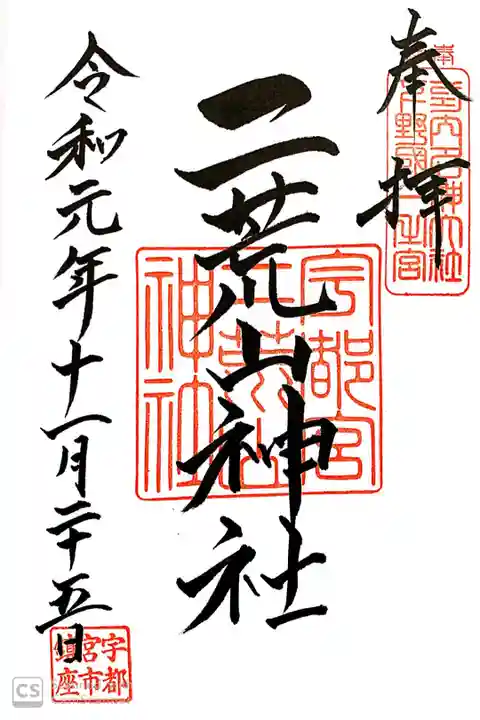 奉拝
二荒山神社
宇都宮
二荒山
神社
令和元年十一月二十五日
宇都
宮市
鎮座
CS